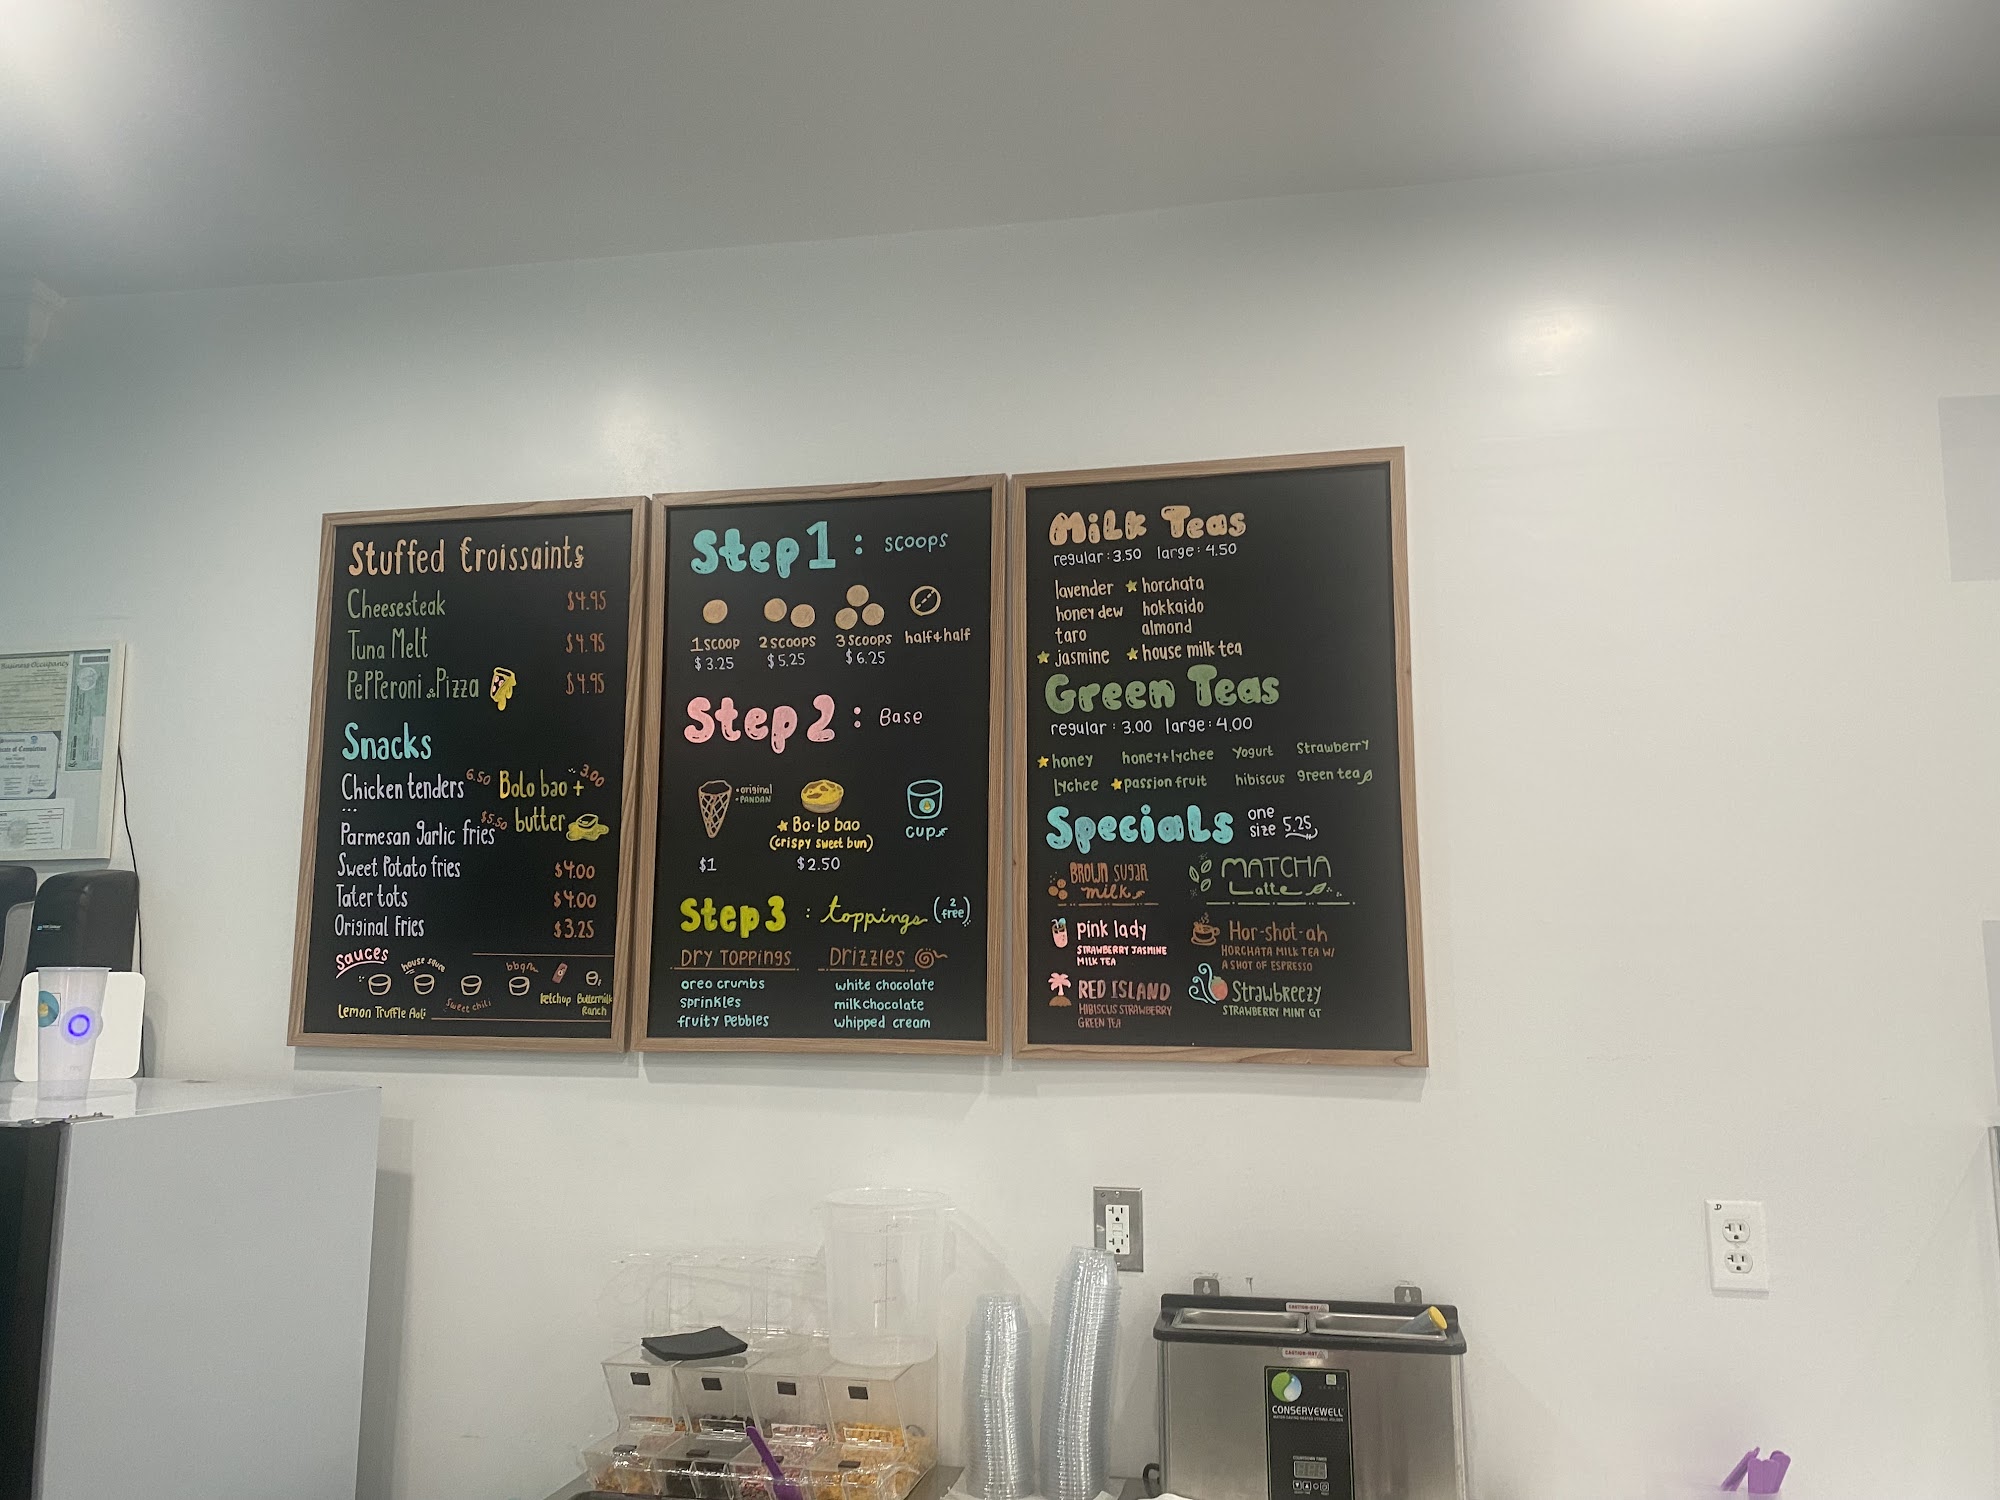 Stuffed Croissaints
Cheesesteak $4.95
Tuna Melt $4.95
Pepperoni Pizza $4.95
Snacks
Chicken tenders 6.50
Parmesan garlic fries $5.50
Bolo bao + 3.00
butter
Sweet Potato fries $4.00
Tater tots $4.00
Original Fries $3.25
Sauces
house sauce
bbq
Lemon Truffle Aoli
sweet chili
ketchup
Buttermilk
Ranch
Step 1 : scoops
1 scoop 2 scoops 3 scoops half+half
$3.25 $5.25 $6.25
Step 2 : Base
• original
• PANDAN
Bo·lo bao
(crispy sweet bun)
cup
$1 $2.50
Step 3 : toppings (2 free)
Dry Toppings
oreo crumbs
sprinkles
fruity pebbles
Drizzles
white chocolate
milk chocolate
whipped cream
Milk Teas
regular : 3.50 large : 4.50
lavender horchata
honey dew hokkaido
taro almond
jasmine house milk tea
Green Teas
regular : 3.00 large : 4.00
honey honey+lychee Yogurt Strawberry
Lychee passion fruit hibiscus green tea
Specials one size 5.25
BROWN SUGAR
milk
MATCHA
Latte
pink lady
STRAWBERRY JASMINE
MILK TEA
Hor-shot-ah
HORCHATA MILK TEA W/
A SHOT OF ESPRESSO
RED ISLAND
HIBISCUS STRAWBERRY
GREEN TEA
Strawbreezy
STRAWBERRY MINT GT
Business Occupancy
CAUTION-HOT
CAUTION-HOT
CONSERVEWELL
D